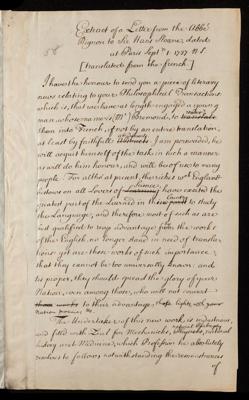 58
Extract of a Letter from the Abbé
Bignon to Sir Hans Sloane, dated
at Paris Sept.r 1. 1737 N.S.
[translated from the french]
I have the honour to send you a piece of literary
news relating to your Philosophical Transactions
which is, that we have at length engaged a young
man whose name is (Mr) Bremond, to translate
them into French, if not by an entire translation,
at least by faithfull I am perswaded, he
will acquit himself of the task in such a manner
as will do him honour, and will be of use to many
people. For altho' at present, the riches wch England
bestows on all Lovers of have excited the
greatest part of the Learned in to study
the Language; and therefore most of such are
just qualified to reap advantage from the works
of the English, no longer stand in need of transla-
tions: yet are these works of such importance,
that they cannot be too universally known; and
tis proper, they should spread the glory of your
Nation, even among those, who will not convert
to their advantage, those lights wch your
nation
The Undertaker of this new work, is industrious,
and fill'd with Zeal for Mechanicks, natural
history and Medicine, which Profession he absolutely
resolves to follow notwithstanding the remonstrances
of